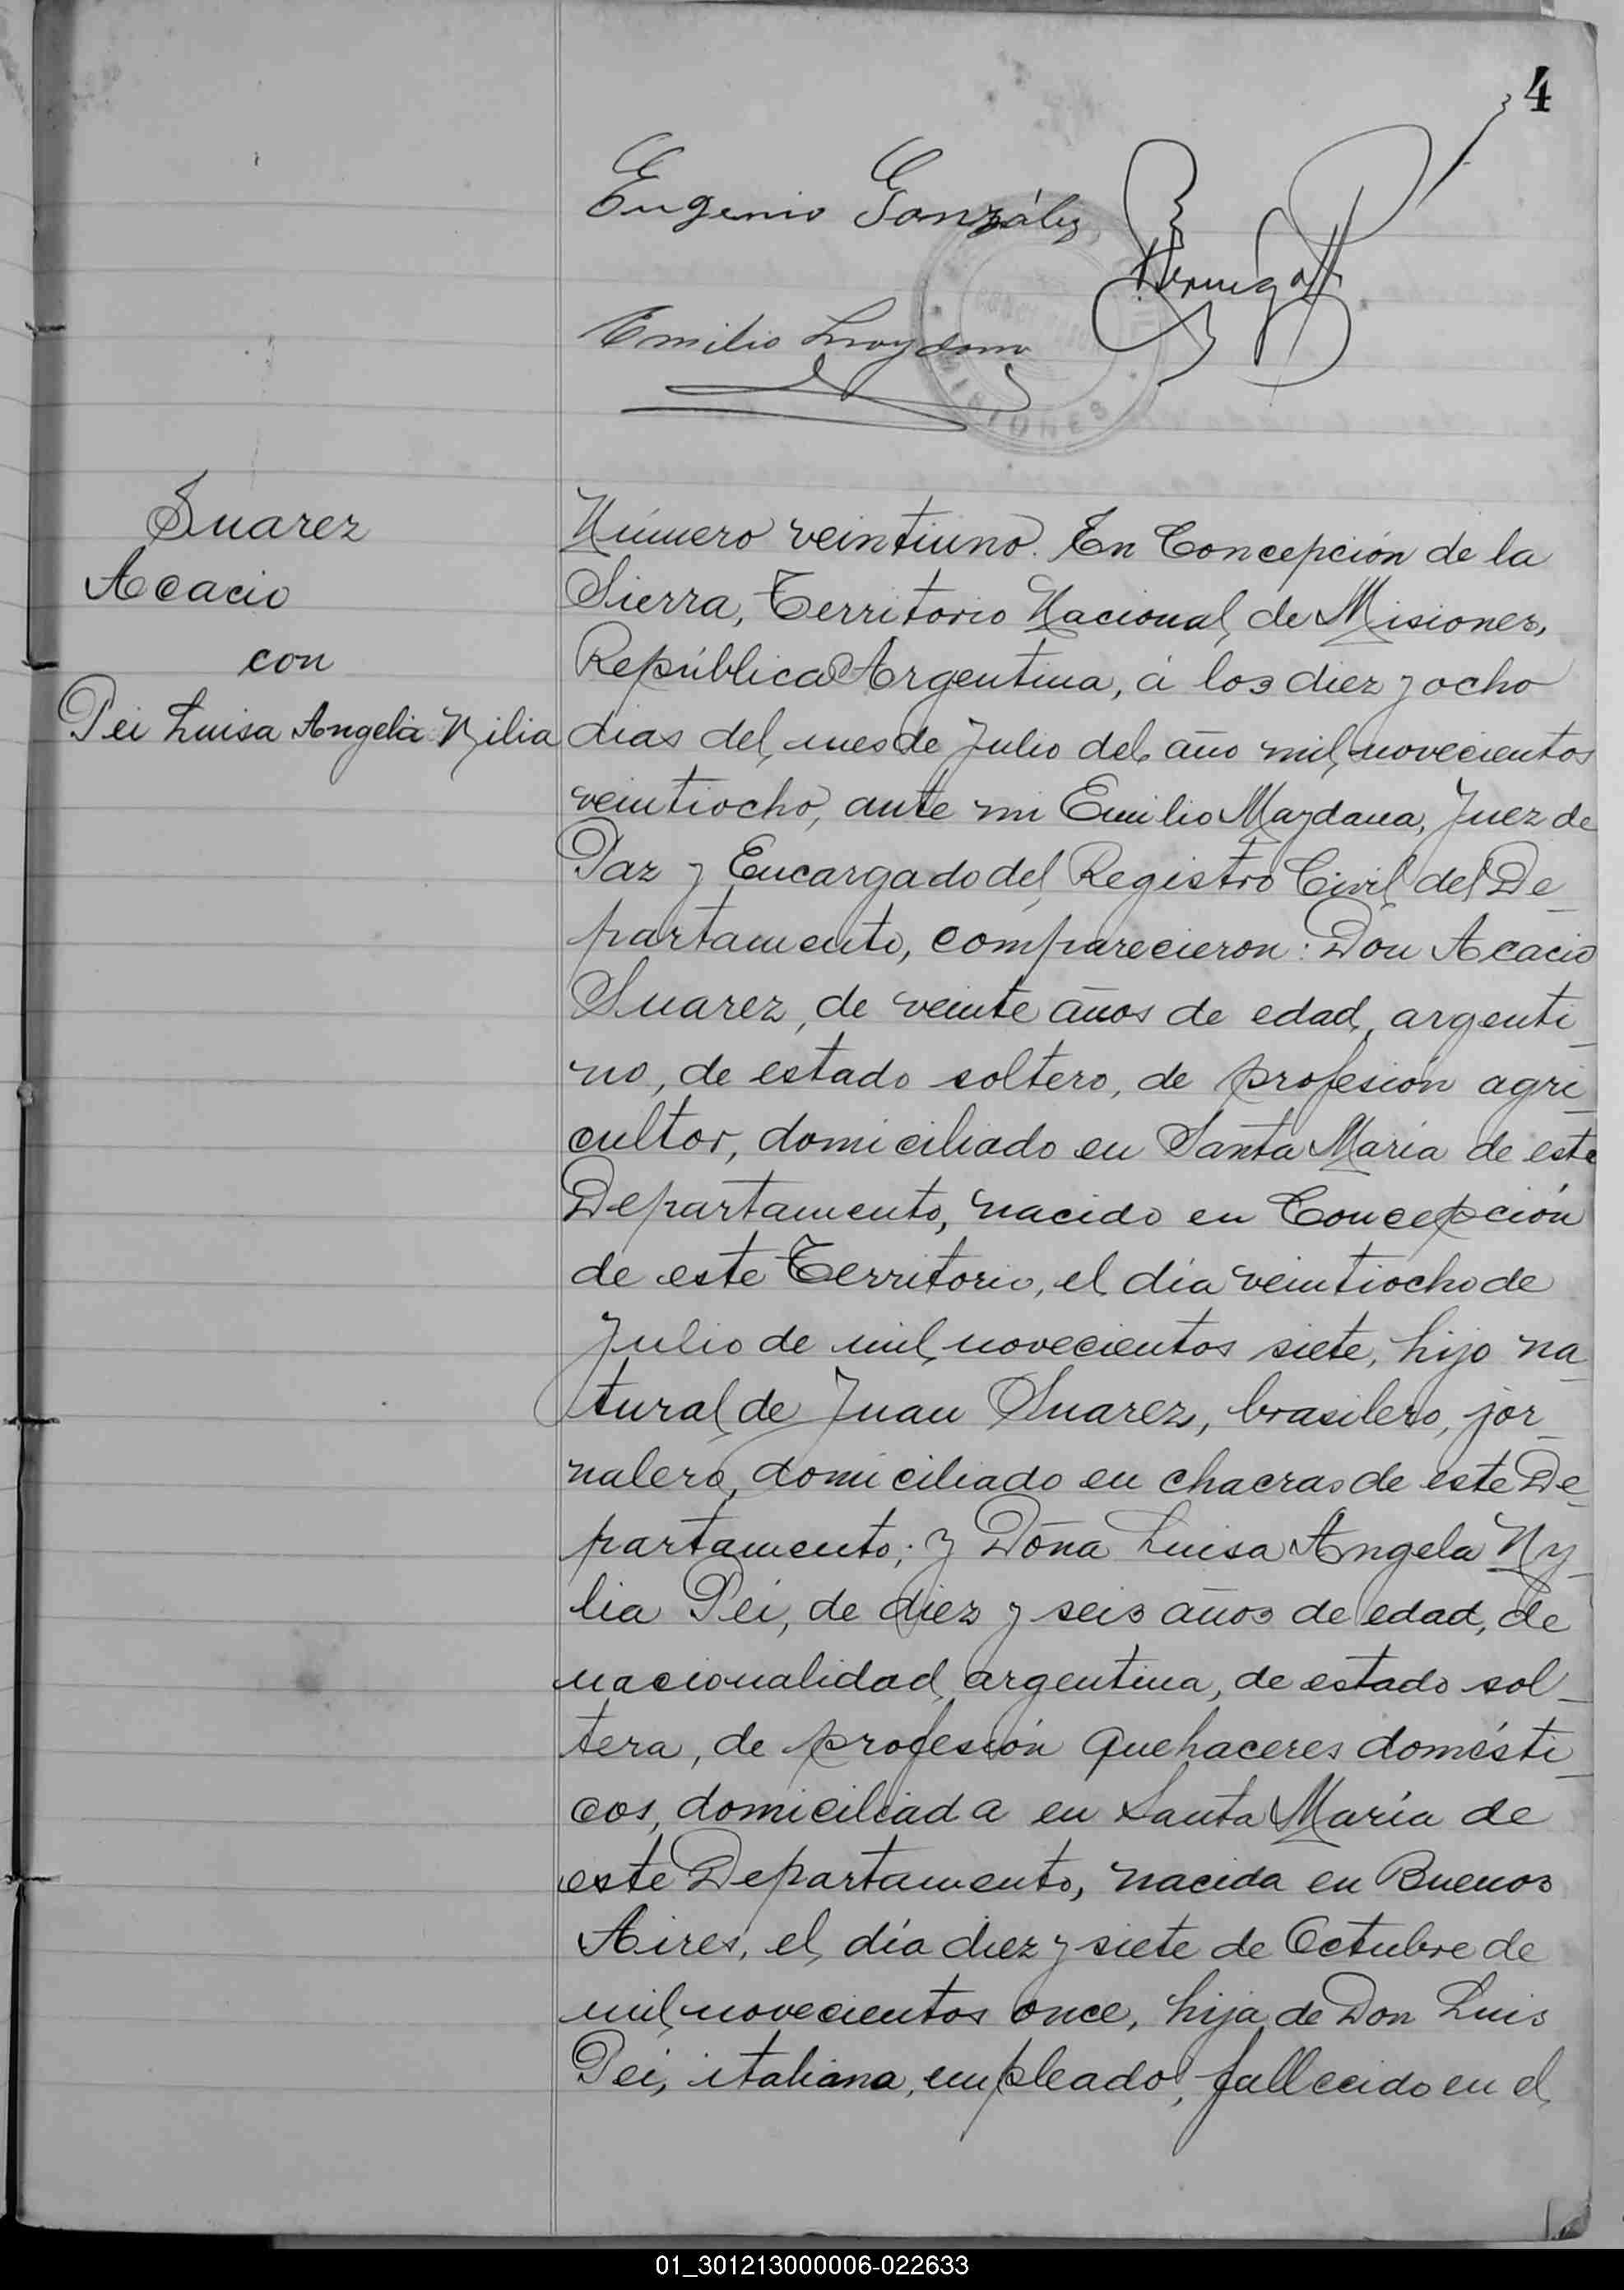 4
Eugenio González
Emilio
MISIONES
Suarez
Acacio
con
Pei Luisa Angela Nilia
Número veintiuno. En Concepción de la
Sierra, Territorio Nacional de Misiones,
República Argentina, á los diez y ocho
dias del mes de Julio del año mil novecientos
veintiocho, ante mi Emilio Maydana, Juez de
Paz y Encargado del Registro Civil del De_
partamento, comparecieron: Don Acacio
Suarez, de veinte años de edad, argenti_
no, de estado soltero, de profesión agri_
cultor, domiciliado en Santa María de este
Departamento, nacido en Concepción
de este Territorio, el día veintiocho de
Julio de mil novecientos siete, hijo na_
tural de Juan Suarez, brasilero, jor_
nalero, domiciliado en chacras de este De_
partamento; y Doña Luisa Angela Ny_
lia Pei, de diez y seis años de edad, de
nacionalidad argentina, de estado sol_
tera, de profesión quehaceres domésti_
cos, domiciliada en Santa María de
este Departamento, nacida en Buenos
Aires, el día diez y siete de Octubre de
mil novecientos once, hija de Don Luis
Pei, italiana, empleado, fallecido en el
01_301213000006-022633